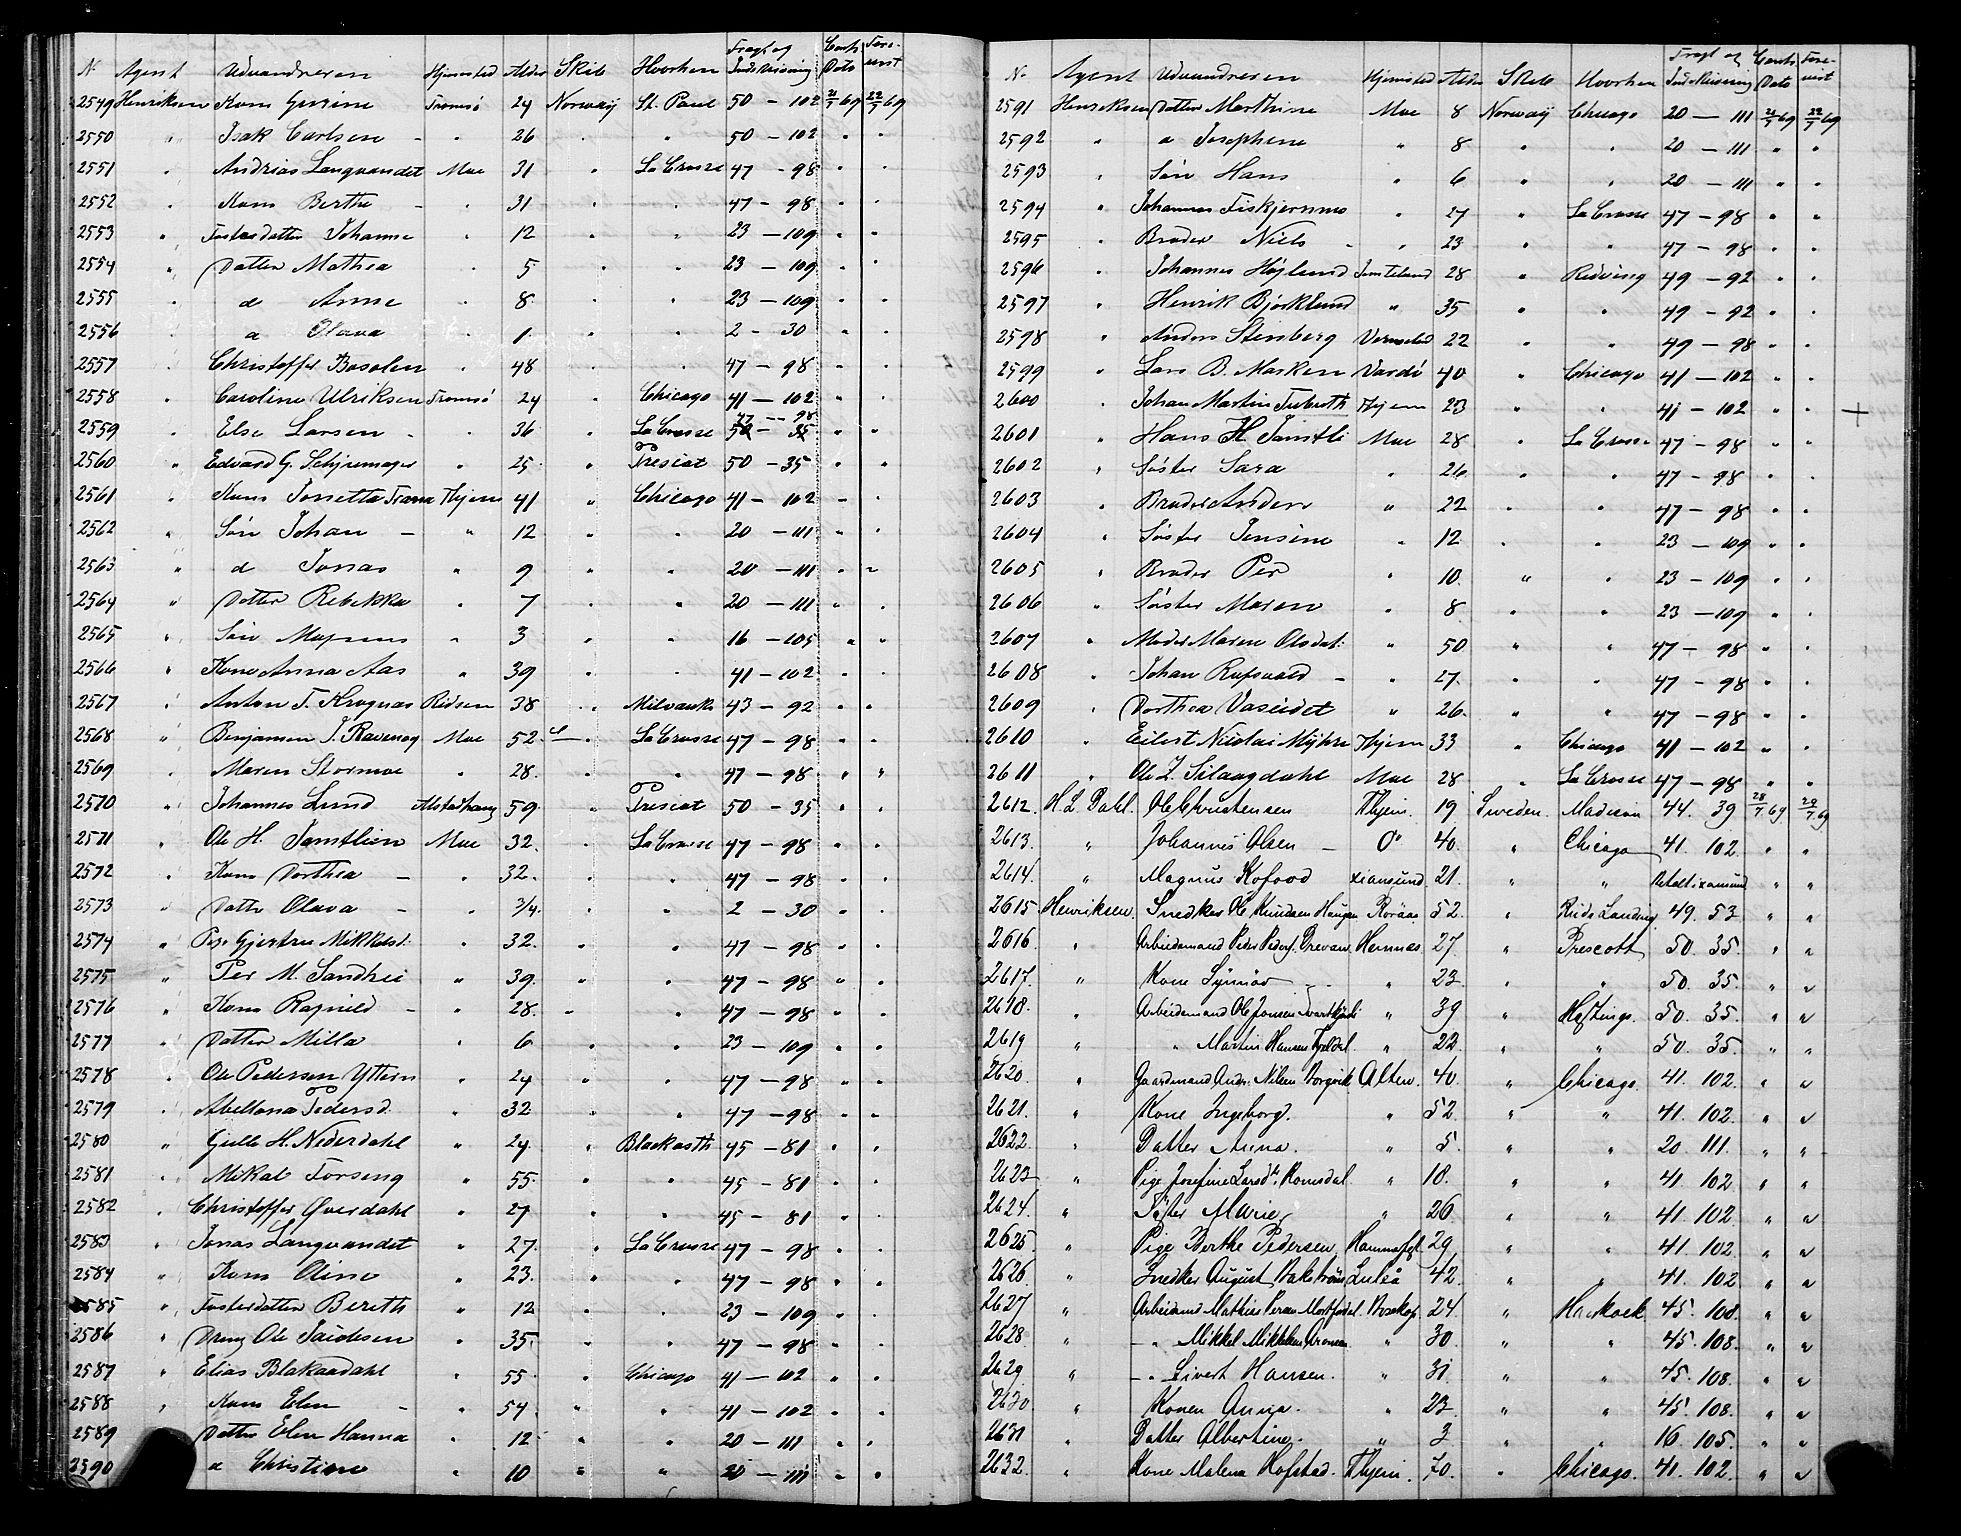 N Agent Udvandreren Hjemsted Alder Skib Hvorhen Fragt og Indskrivning Conts Dato Fore- vist
2549 Henriksen Kone Gurine Tromsö 24 Norway St. Paul 50 - 102 21/7 69 22/7 69
2550 " Isak Carlsen - " 26 " " 50 - 102 " "
2551 " Andrias Langvandet Moe 31 " La Crosse 47 - 98 " "
2552 " Kone Berthe - " 31 " " 47 - 98 " "
2553 " Fosterdatter Johanne " 12 " " 23 - 109 " "
2554 " Datter Mathea " 5 " " 23 - 109 " "
2555 " d Anne " 8 " " 23 - 109 " "
2556 " d Olava " 1 " " 2 - 30 " "
2557 " Christoffer Basolen " 48 " " 47 - 98 " "
2558 " Caroline Ulriksen Tromsö 24 " Chicago 41 - 102 " "
2559 " Else Larsen - " 36 " La Crosse 47 - 98 " "
2560 " Edvard G. " 25 " Prescot 50 - 35 " "
2561 " Kone Jonetta Thjem 41 " Chicago 41 - 102 " "
2562 " Sön Johan - " 12 " " 20 - 111 " "
2563 " d Jonas " 9 " " 20 - 111 " "
2564 " Datter Rebekka " 7 " " 20 - 111 " "
2565 " Sön " 3 " " 16 - 105 " "
2566 " Kone Anna Aas " 39 " " 41 - 102 " "
2567 " Anton T. 38 " Milvauk 43 - 92 " "
2568 " Benjamin J. Moe 52 " La Crosse 47 - 98 " "
2569 " Maren Stormoe " 28 " " 47 - 98 " "
2570 " Johannes Lund Alstadhaug 59 " Prescot 50 - 35 " "
2571 " Ole H. Jamtlien Moe 32 " La Crosse 47 - 98 " "
2572 " Kone Dorthea - " 32 " " 47 - 98 " "
2573 " Datter Olava - " 3/4 " " 2 - 30 " "
2574 " Pige Gjertru Mikkelsd: " 32 " " 47 - 98 " "
2575 " Per M. " 39 " " 47 - 98 " "
2576 " Kone Ragnild - " 28 " " 47 - 98 " "
2577 " Datter Milla " 6 " " 23 - 109 " "
2578 " Ole Pedersen Yttern " 24 " " 47 - 98 " "
2579 " Abellona Pedersd. " 32 " " 47 - 98 " "
2580 " H. Nederdahl " 24 " 45 - 81 " "
2581 " Mikal Forseng " 55 " " 45 - 81 " "
2582 " Christoffer Överdahl " 27 " " 45 - 81 " "
2583 " Jonas Langvandet " 27 " La Crosse 47 - 98 " "
2584 " Kone Oline " 23 " " 47 - 98 " "
2585 " Fosterdatter Bereth " 12 " " 23 - 109 " "
2586 " Dreng Ole " 35 " " 47 - 98 " "
2587 " Elias Blakaadahl " 55 " Chicago 41 - 102 " "
2588 " Kone Elen - " 54 " " 41 - 102 " "
2589 " Datter Elen Hanna " 12 " " 20 - 111 " "
2590 d Christine " 10 " " 20 - 111 " "
N. Agent Udvandreren Hjemsted Alder Skib Hvorhen Fragt og Indskrivning Conts Dato Fore- vist
2591 Henriksen Datter Marthine Moe 8 Norway Chicago 20 - 111 21/7 69 22/7 69
2592 " d Josephine " 8 " " 20 - 111 " "
2593 " Sön Hans " 6 " " 20 - 111 " "
2594 " Johannes Fiskjernmo " 27 " La Crosse 47 - 98 " "
2595 " Broder Niels - " 23 " " 47 - 98 " "
2596 " Johannes Höglund Jemteland 28 " Redwing 49 - 92 " "
2597 " Henrik Björklund " 35 " " 49 - 92 " "
2598 " Anders Stenberg 22 " " 49 - 98 " "
2599 " Lars B. Marken Vardö 40 " Chicago 41 - 102 " "
2600 " Johan Martin Thjem 23 " " 41 - 102 " " +
2601 " Hans H Jamtli Moe 28 " La Crosse 47 - 98 " "
2602 " Söster Sara " 26 " " 47 - 98 " "
2603 " Broder Anders " 22 " " 47 - 98 " "
2604 " Söster Jensine " 12 " " 23 - 109 " "
2605 " Broder Per " 10 " " 23 - 109 " "
2606 " Söster Maren " 8 " " 23 - 109 " "
2607 " Moder Maren Olsdat: " 50 " " 47 - 98 " "
2608 " Johan - " 27 " " 47 - 98 " "
2609 " Dorthea " 26 " " 47 - 98 " "
2610 " Eilert Nicolai Myhre Thjem 33 " Chicago 41 - 102 " "
2611 " Ole Z. Moe 28 " La Crosse 47 - 98 " "
2612 H. L. Dahl. Ole Christensen Thjem. 19 Sweden. Madison 44. 39 28/7 69 29/7 69
2613. " Johannes Olsen - O" 40. " Chicago 41. 102. " "
2614. " Magnus Kofoed Xiansund. 21. " " Betalt i Xansund " "
2615 Henriksen. Snedker Ole Knudsen Haugen Roröas 52. " Reids Landing 49. 53 " "
2616. " Arbeidsmand Peder Peders. Hemnæs. 27. " Prescott 50. 35. " "
2617. " Kone Synnöv - " 23 " " 50. 35. " "
2618. " Arbeidsmand Ole Jonsen " 39 " Hastings. 50. 35. " "
2619 " " Martin Hansen " 22. " " 50. 35. " "
2620. " Gaardmand Andr. Nilsen Borgvik Alten. 40. " Chicago 41. 102. " "
2621. " Kone Ingeborg. " 52. " " 41. 102. " "
2622. " Datter Anna. " 5. " " 20 111. " "
2623 " Pige Josefine Larsdr. Romsdal " 18. " " 41. 102 " "
2624. " Söster Marie " 26 " " 41. 102. " "
2625. " Pige Berthe Pedersen Hammerf. 29 " " 41. 102. " "
2626. " Snedker August Bakström Luleå 42. " " 41. 102. " "
2627 " Mathias Bosekop. 24. " Hankock 45. 108. " "
2628. " - " Mikkel Mikkelsen " 30. " " 45. 108. " "
2629 " - " Sivert Hansen. " 31. " " 45. 108. " "
2630. " Konen Anna. " 23. " " 45. 108. " "
2631 " Datter Albertine. " 3 " " 16. 105. " "
2632. " Kone Malena Hofstad. Thjem. 70. " Chicago. 41. 102. " "